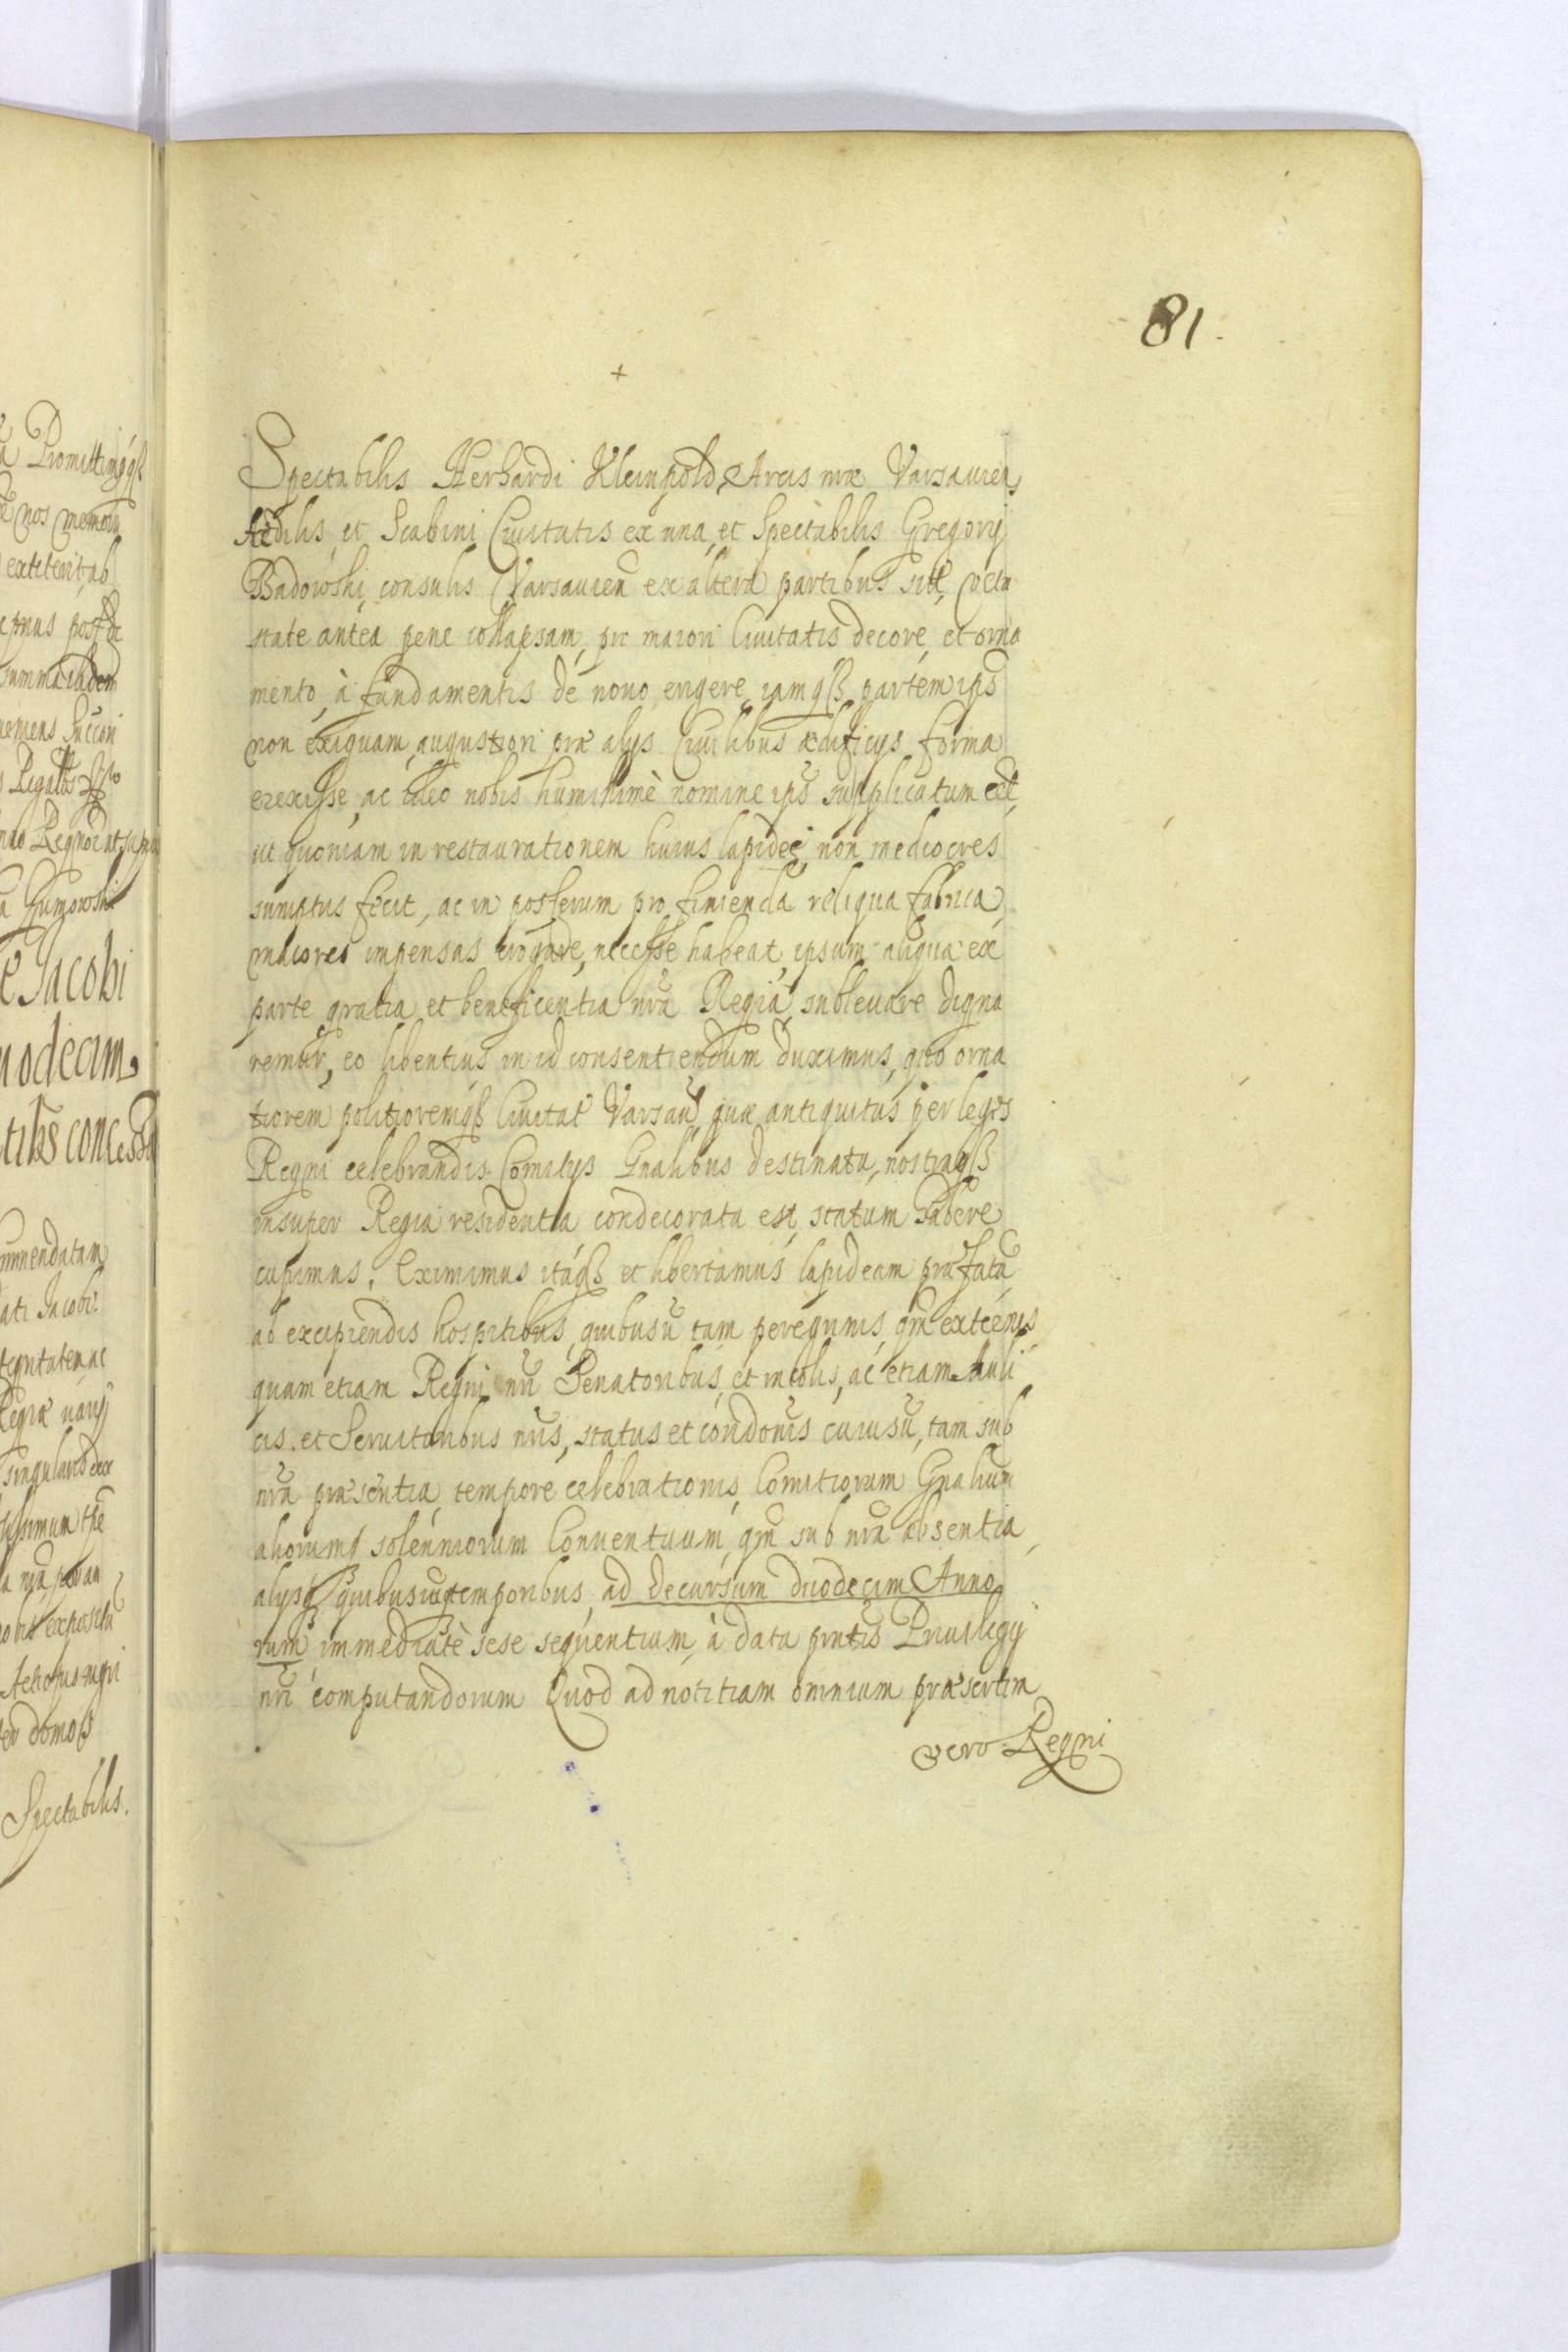 81.
+
Spectabilis Herhardi Kleinpold, Arcis nræ Varsavien
Aedilis, et Scabini Civitatis ex una, et Spectabilis Gregorÿ
Badowski, consulis Varsavien ex altera partibus sitã, vetu
state antea pene collapsam, pro maiori Civitatis decore, et orna
mento, à fundamentis de novo erigere, iamqß partem ips
non exiguam, augustiori præ alÿs Civilibus ædificÿs forma
erexisse, ac ideo nobis humilimè nomine ips supplicatum est,
ut quoniam in restaurationem huius lapideæ, non mediocres
sumptus fecit, ac in posterum pro finienda reliqua fabrica,
maiores impensas erogare, necesse habeat, ipsum aliqua ex
parte gratia et beneficentia nrã Regiâ, sublevare digna
remur, eo libentius in id consentiendum duximus, quo orna
tiorem politioremqß Civitat Varsav̄ quæ antiquitus per leges
Regni celebrandis Comitÿs Gnalibus destinata, nostraqß
insuper Regia residentia condecorata est, statum habere
cupimus. Eximimus itaqß et libertamus lapideam præfatã
ab excipiendis hospitibus, quibusū tam peregrinis, qm̃ externis,
quam etiam Regni nrĩ Senatoribus, et incolis, ac etiam Auli
cis et Servitoribus nrĩs, status et condonĩs cuiusũ, tam sub
nrã præsentia, tempore celebrationis, Comitiorum Gnalium
aliorumq solenniorum Conventuum, qm̃ sub nrã absentia,
alÿsqß quibusvis temporibus, ad decursum duodecim Anno
rum immediatè sese sequentium, à data pntis Privilegÿ
nrĩ computandorum Quod ad notitiam omnium præsertim
vero Regni